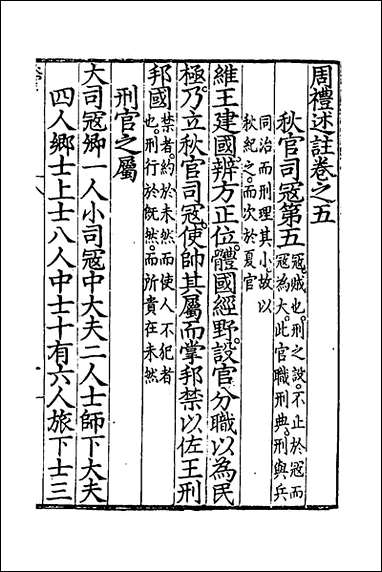 周禮述註卷之五
秋官司寇第五
寇賊也刑之設不止於寇而
寇為大此官職刑典刑與兵
同治而刑理其小故以
秋紀之而次於夏官
維王建國辨方正位體國經野設官分職以為民
極乃立秋官司寇使帥其屬而掌邦禁以佐王刑
邦國
禁者約於未然而使人不犯者
也刑行於既然而所貴在未然
刑官之屬
大司寇卿一人小司寇中大夫二人士師下大夫
四人鄉士上士八人中士十有六人旅下士三